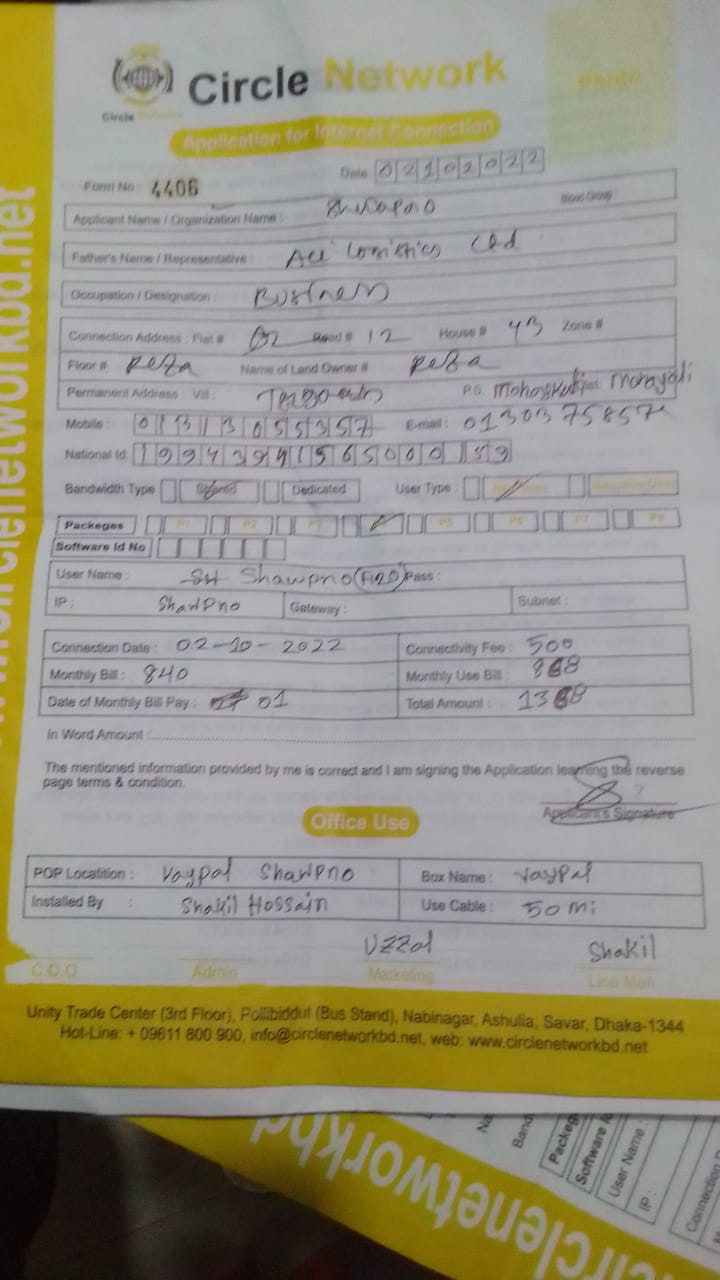 Circle Network
Circle Network
Photo
Application for Internet Connection
Date 02102022
Form No: 4406
Blood Group:
Applicant Name / Organization Name:
Father's Name / Representative:
Occupation / Designation: Business
Connection Address: Flat # 02 Road # 12 House # 43 Zone #
Floor # Reza Name of Land Owner # Reza
Permanent Address: Vill: P.S.
Mobile: E-mail:
National Id:
Bandwidth Type Shared Dedicated User Type:
Packeges P1 P2 P3 P5 P6 P7 P8
Software Id No
User Name: SH Shawpno Pass:
IP: ShawPno Gateway: Subnet:
Connection Date: 02-10-2022 Connectivity Fee: 500
Monthly Bill: 840 Monthly Use Bill:
Date of Monthly Bill Pay: 01 Total Amount:
In Word Amount:
The mentioned information provided by me is correct and I am signing the Application learning the reverse
page terms & condition.
Applicant's Signature
Office Use
POP Locatition: Vaypal ShawPno Box Name: Vaypal
Installed By : Shakil Hossain Use Cable: 50 mi
Uzzol Shakil
C.O.O Admin Marketing Line Man
Unity Trade Center (3rd Floor), Pollibiddut (Bus Stand), Nabinagar, Ashulia, Savar, Dhaka-1344
Hot-Line: + 09611 800 900, info@circlenetworkbd.net, web: www.circlenetworkbd.net
circlenetworkbd
Packeg
Software
User Name:
IP:
Connection